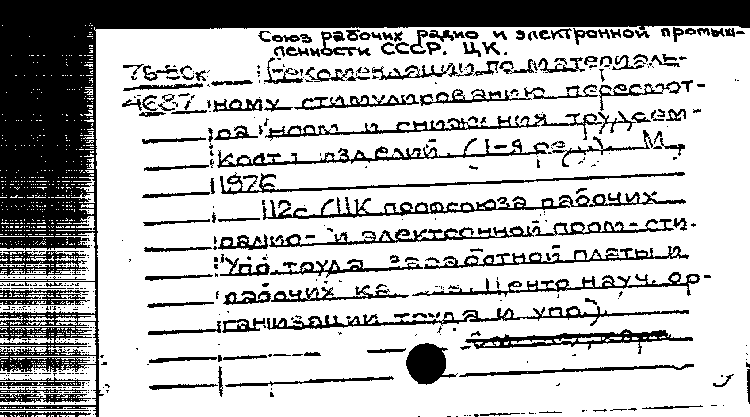 Союз рабочих радио и электронной промыш-
ленности СССР. ЦК.
76-80к Рекомендации по материаль-
4687 ному стимулированию пересмот-
ра норм и снижения трудоем-
кост изделий. (1-я ред.). М.,
1976
112с (ЦК профсоюза рабочих
радио- и электронной пром-сти.
Упр. труда заработной платы и
рабочих ка Центр науч. ор-
ганизации труда и упр.)